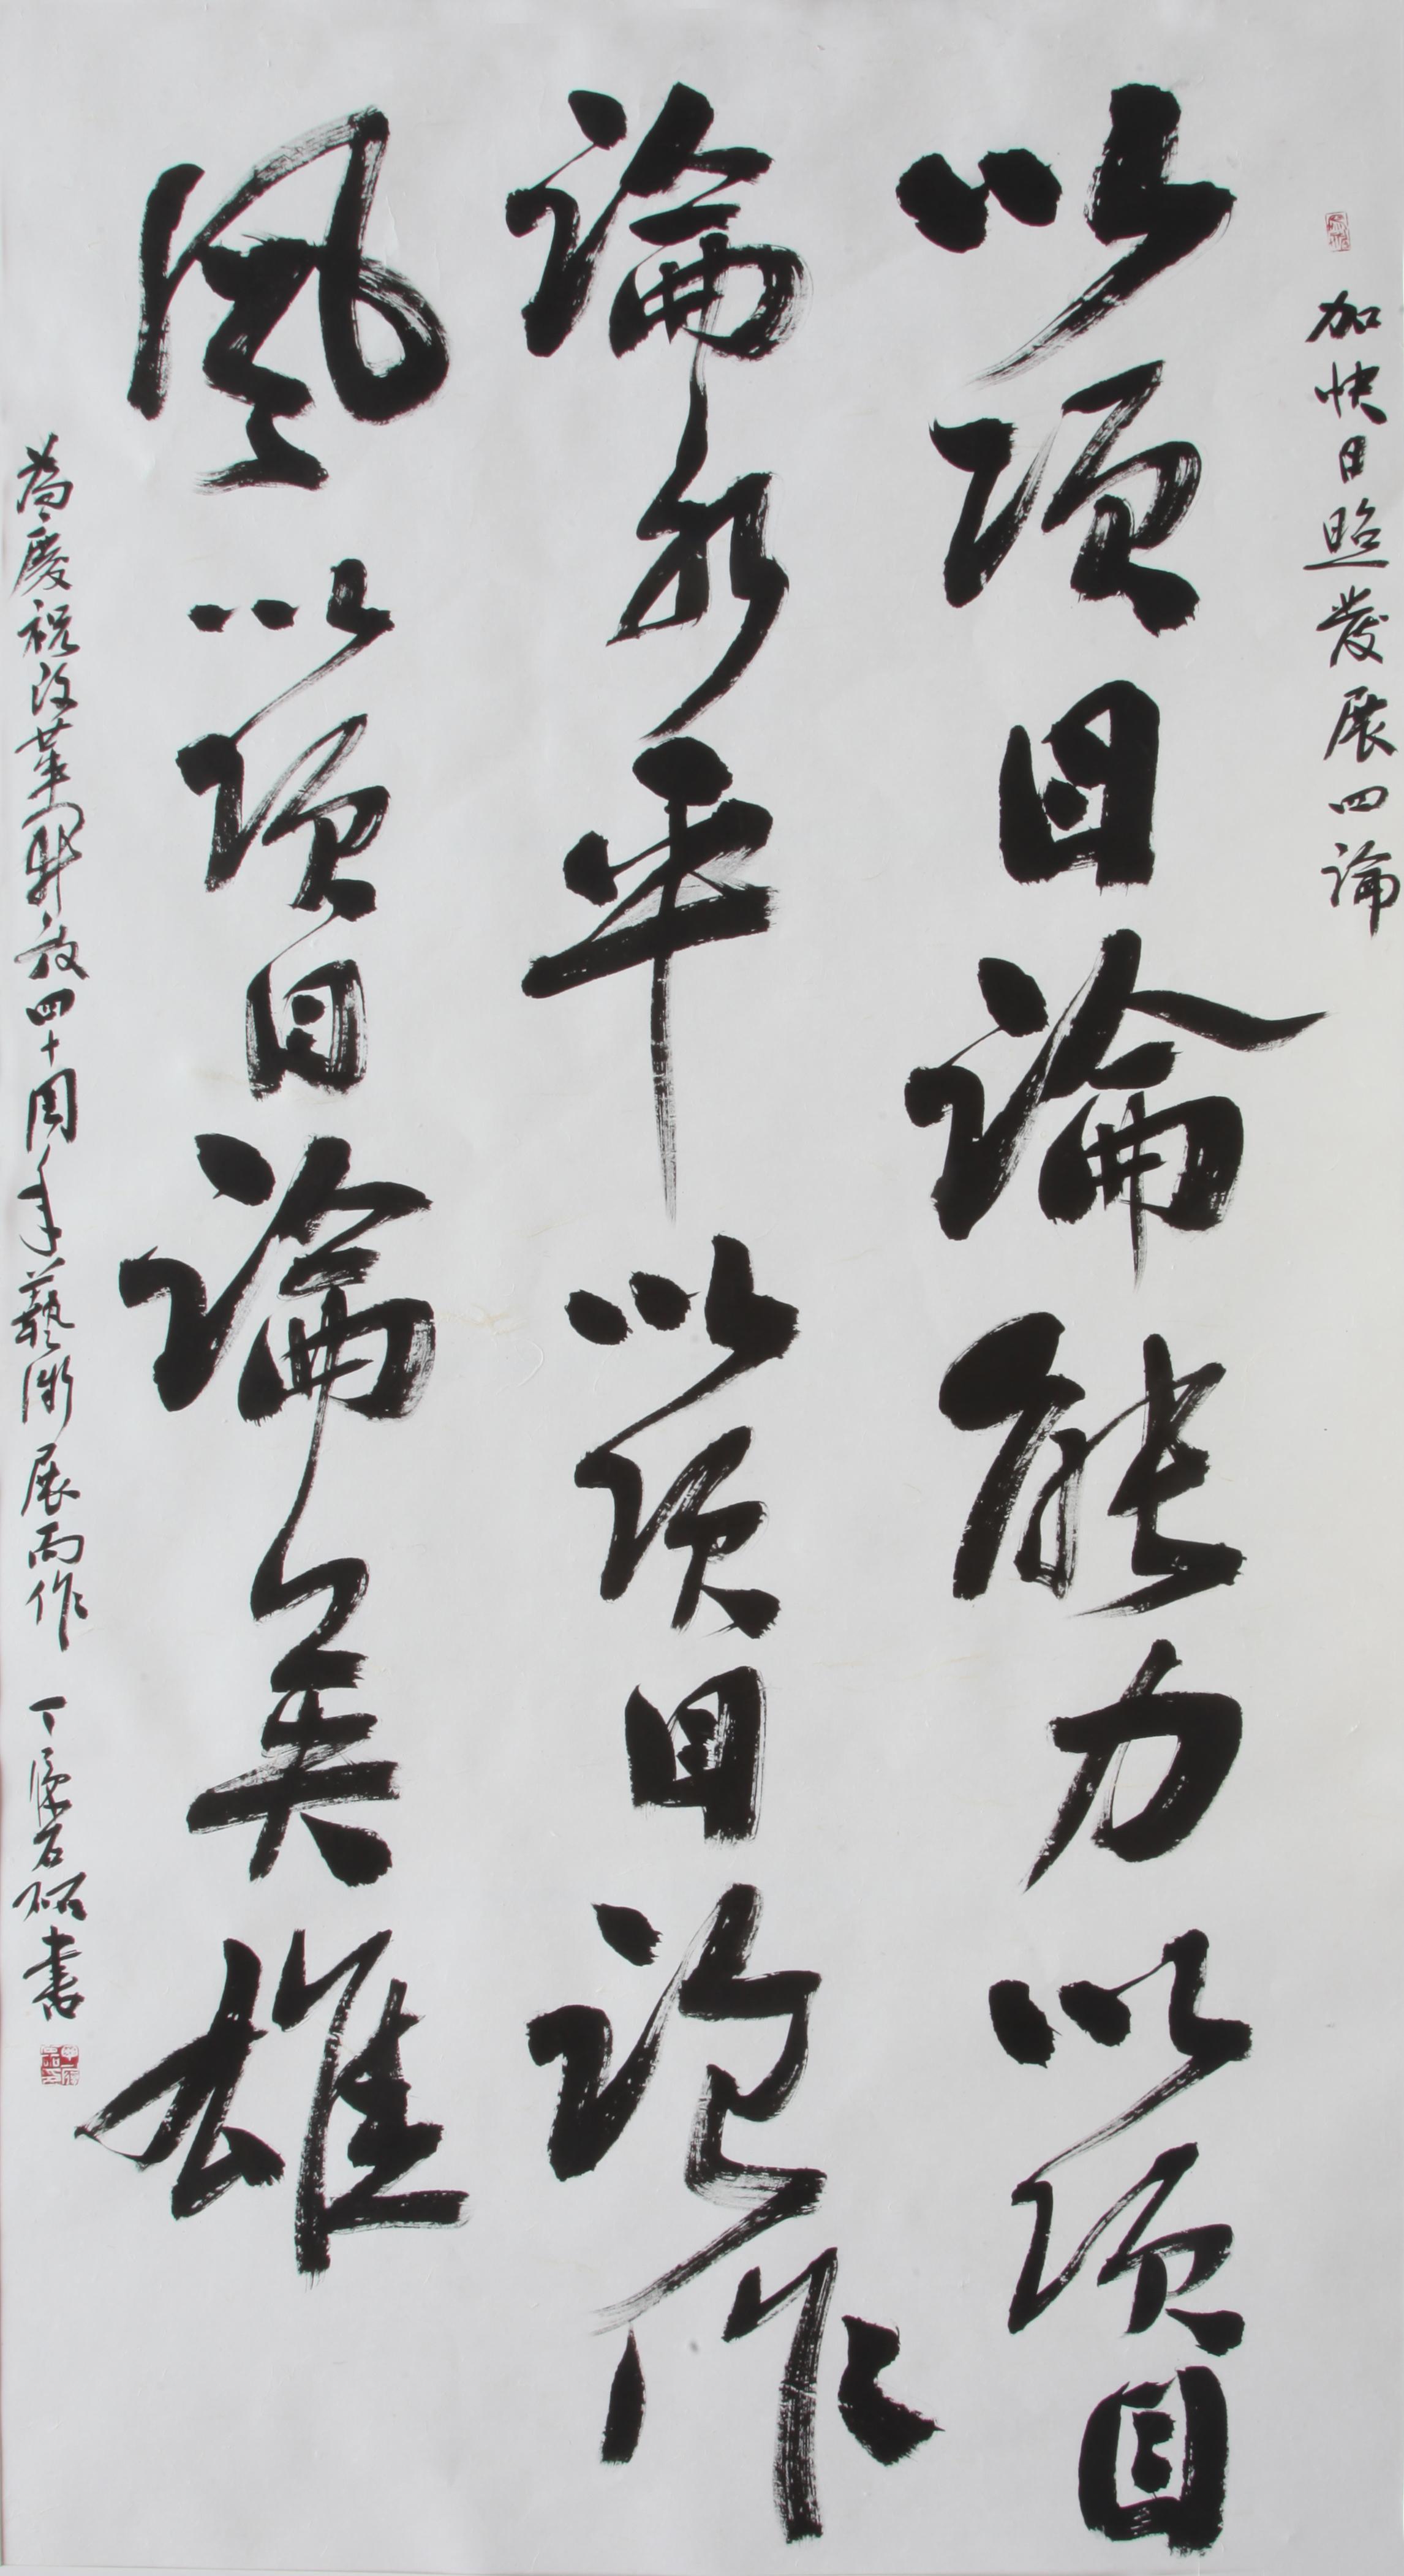 加快日照發展四論
以项目論能力以项目
論水平以项目论作
風以项目論英雄
為慶祝改革開放四十周年藝術展而作 丁 石 書